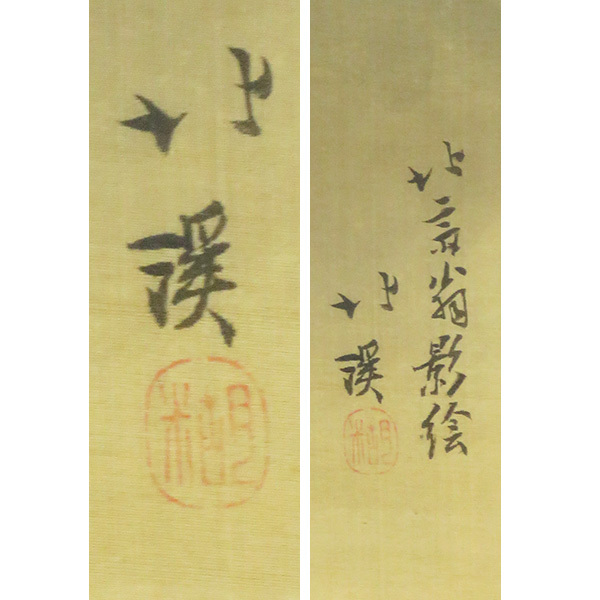 北渓
北斎翁影絵
北渓